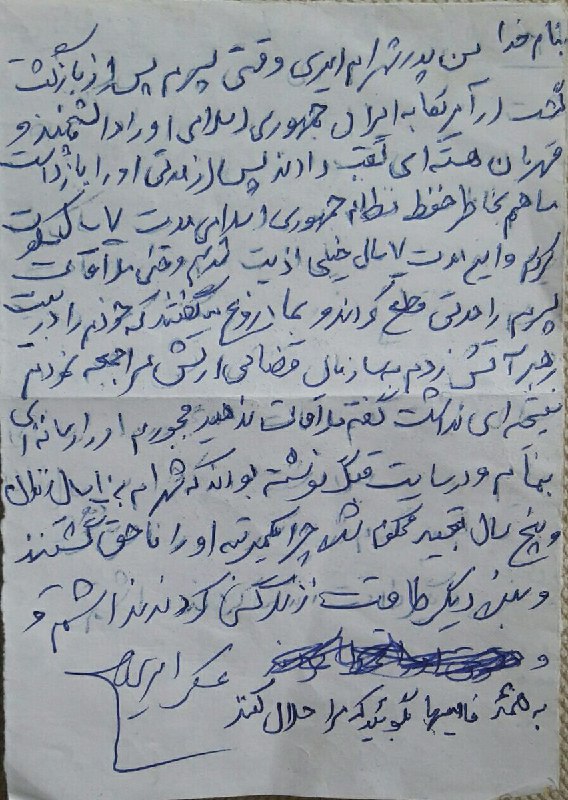 بنام خدا من پدر شهرام امیری وقتی پسرم پس از بازگشت
گشت از آمریکا به ایران جمهوری اسلامی او را دانشمند و
قهرمان هسته ای لقب دادند پس از مدتی او را بازداشت
ما هم بخاطر حفظ نظام جمهوری اسلامی مدت ۷ سال سکوت
کردم و این مدت ۷ سال خیلی اذیت شدم وقتی ملاقات
پسرم را مدتی قطع کردند و بما دروغ میگفتند که خودم را در بیت
رهبر آتش زدم بسازمان قضائی ارتش مراجعه نمودم
نتیجه ای نداشت گفتم ملاقات ندهید مجبورم او را رسانه ای
بنمایم و در سایت قبل نوشته بودند که شهرام به ۱۰ سال زندان
و پنج سال تبعید محکوم شد چرا او را ناحق کشتند
و من دیگر طاقت زندگی کردن نداشتم و
و
عسگر امیری
به همه فامیلها بگوئید که مرا حلال کنند